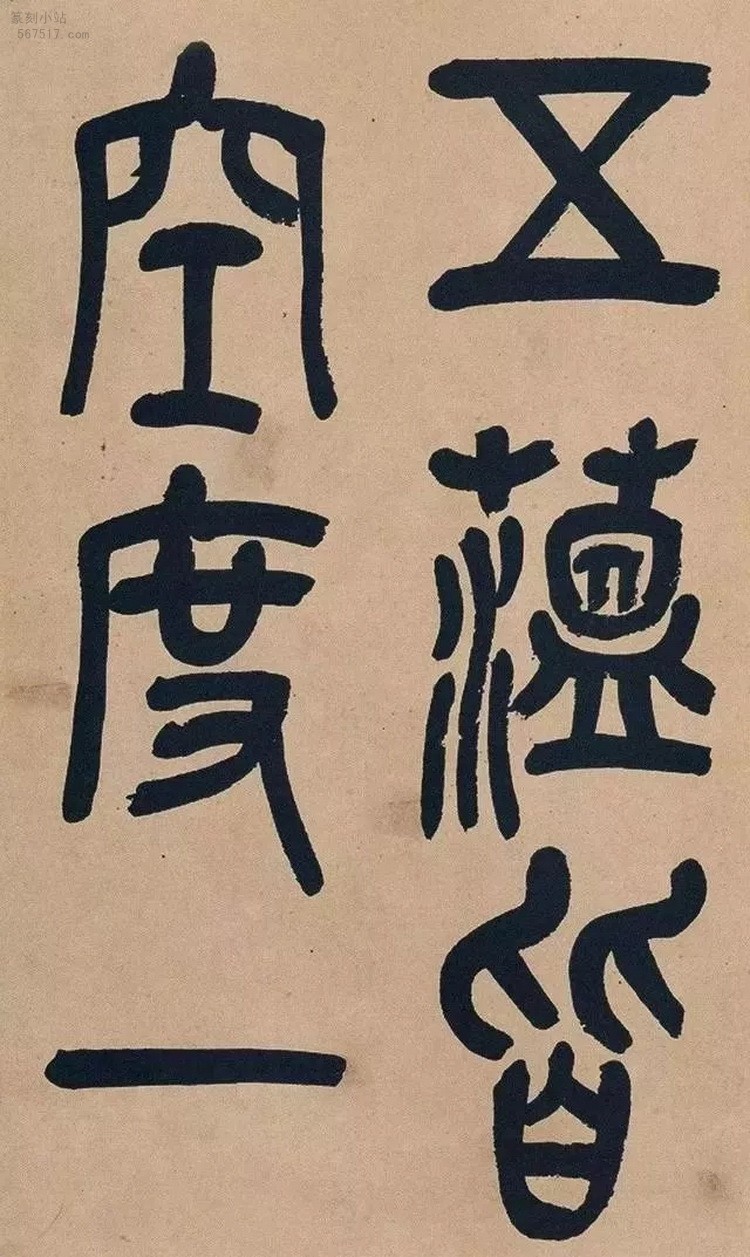 五薀皆
空度一
篆刻小站
567517.com